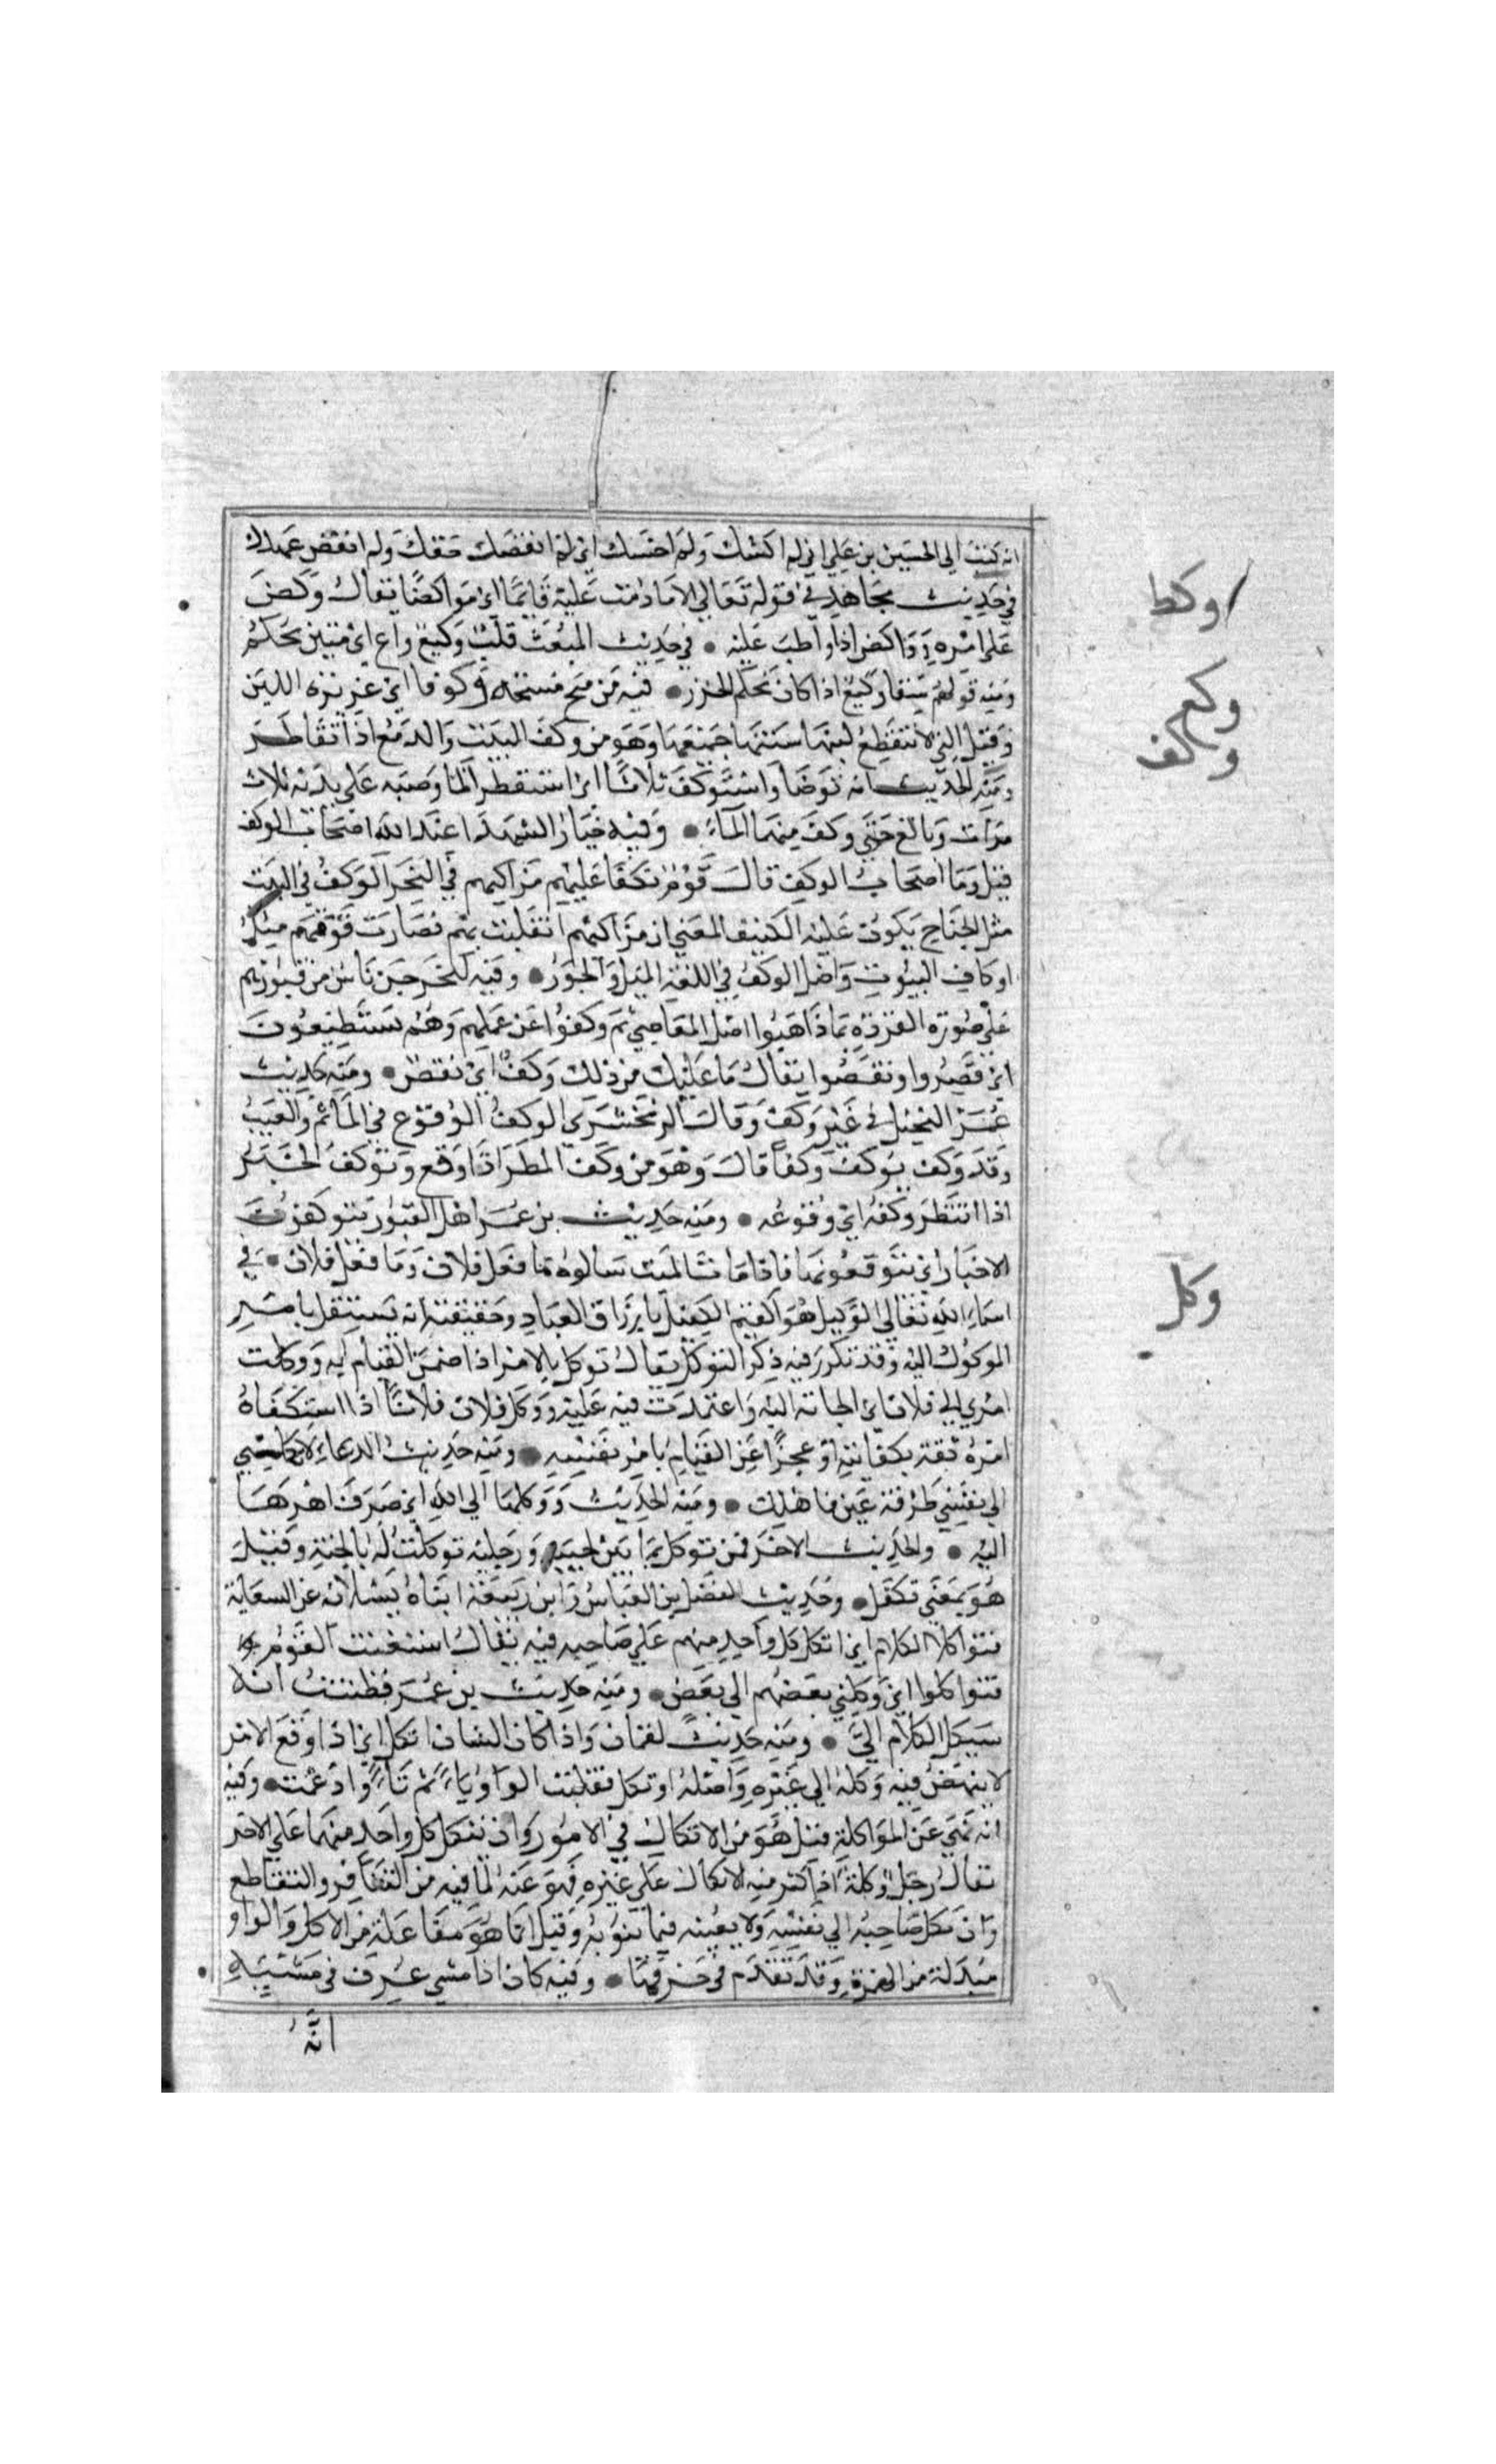 انه كتب الي الحسين بن علي اني لم اكسك ولم اخسك اي لم انقصك حقك ولم انقض عهدك
في حديث مجاهد في قوله تعالي الا ما دمت عليه قائما اي مواكضا يقال وكض
علي امره وواكض اذا واظب عليه • في حديث المبعث قلب وكيع واع اي متين محكم
ومنه قولهم سقا وكيع اذا كان محكم الخرز • فيه من منح منحة وكوفا اي غزيرة اللبن
وقيل التي لا ينقطع لبنها سنتها جميعها وهو من وكف البيت والدمع اذا تقاطر
ومنه الحديث انه توضا واستوكف ثلاثا اي استقطر الما وصبه علي يديه ثلاث
مرات وبالغ حتي وكف منهما المآء • وفيه خيار الشهدا عند الله اصحاب الوكف
قيل وما اصحاب الوكف قال قوم تكفا عليهم مراكبهم في البحر الوكف في البيت
مثل الجناح يكون عليه الكنيف المعني ان مراكبهم انقلبت بهم فصارت فوقهم مثل
اوكاف البيوت واصل الوكف في اللغة الميل والجور • وفيه ليخرجن ناس من قبورهم
علي صورة القردة بما داهنوا اهل المعاصي ثم وكفوا عن علمهم وهم يستطيعون
اي قصروا ونقصوا يقال ما عليك من ذلك وكف اي نقص • ومنه حديث
عمر البخيل في غير وكف وقال الزمخشري الوكف الوقوع في المأثم والعيب
وقد وكف يوكف وكفا قال وهو من وكف المطر اذا وقع وتوكف الخبر
اذا انتظر وكفه اي وقوعه • ومنه حديث بن عمر اهل القبور يتوكفون
الاخبار اي يتوقعونها فاذا مات الميت سالوه ما فعل فلان وما فعل فلان • في
اسماء الله تعالي الوكيل هو القيم الكفيل بارزاق العباد وحقيقته انه يستقل بامر
الموكول اليه وقد تكرر فيه ذكر التوكل يقال توكل بالامر اذا ضمن القيام به ووكلت
امري الي فلان اي الجاته اليه واعتمدت فيه عليه ووكل فلان فلانا اذا استكفاه
امره ثقة بكفايته او عجزا عن القيام بامر نفسه • ومنه حديث الدعاء لا تكلني
الي نفسي طرفة عين فاهلك • ومنه الحديث ووكلها الي الله اي صرف امرها
اليه • والحديث الاخر من توكل بما بين لحييه ورجليه توكلت له بالجنة وقيل
هو بمعني تكفل • وحديث الفضل بن العباس وابن ربيعة اتياه يسئلانه عن السعاية
فتواكلا الكلام اي اتكل كل واحد منهم علي صاحبه فيه يقال استعنت القوم
فتواكلوا اي وكلني بعضهم الي بعض • ومنه حديث بن عمر فظننت انه
سيكل الكلام الي • ومنه حديث لقمان واذا كان الشان اتكل اي اذا وقع الامر
لا ينهض فيه وكله الي غيره واصله اوتكل فقلبت الواو ياء ثم تاء وادغمت • وفيه
انه نهي عن المواكلة قيل هو من الاتكال في الامور وان يتكل كل واحد منهما علي الاخر
يقال رجل وكلة اذا كثر منه الاتكال علي غيره فهو عنه لما فيه من التنافر والتقاطع
وان يكل صاحبه الي نفسه ولا يعينه فيما ينوبه وقيل انما هو مفاعلة من الاكل والواو
مبدلة من الهمزة وقد تقدم في حرفها • وفيه كان اذا مشي عرف في مشيه
انه
وكظ
وكع
وكف
وكل